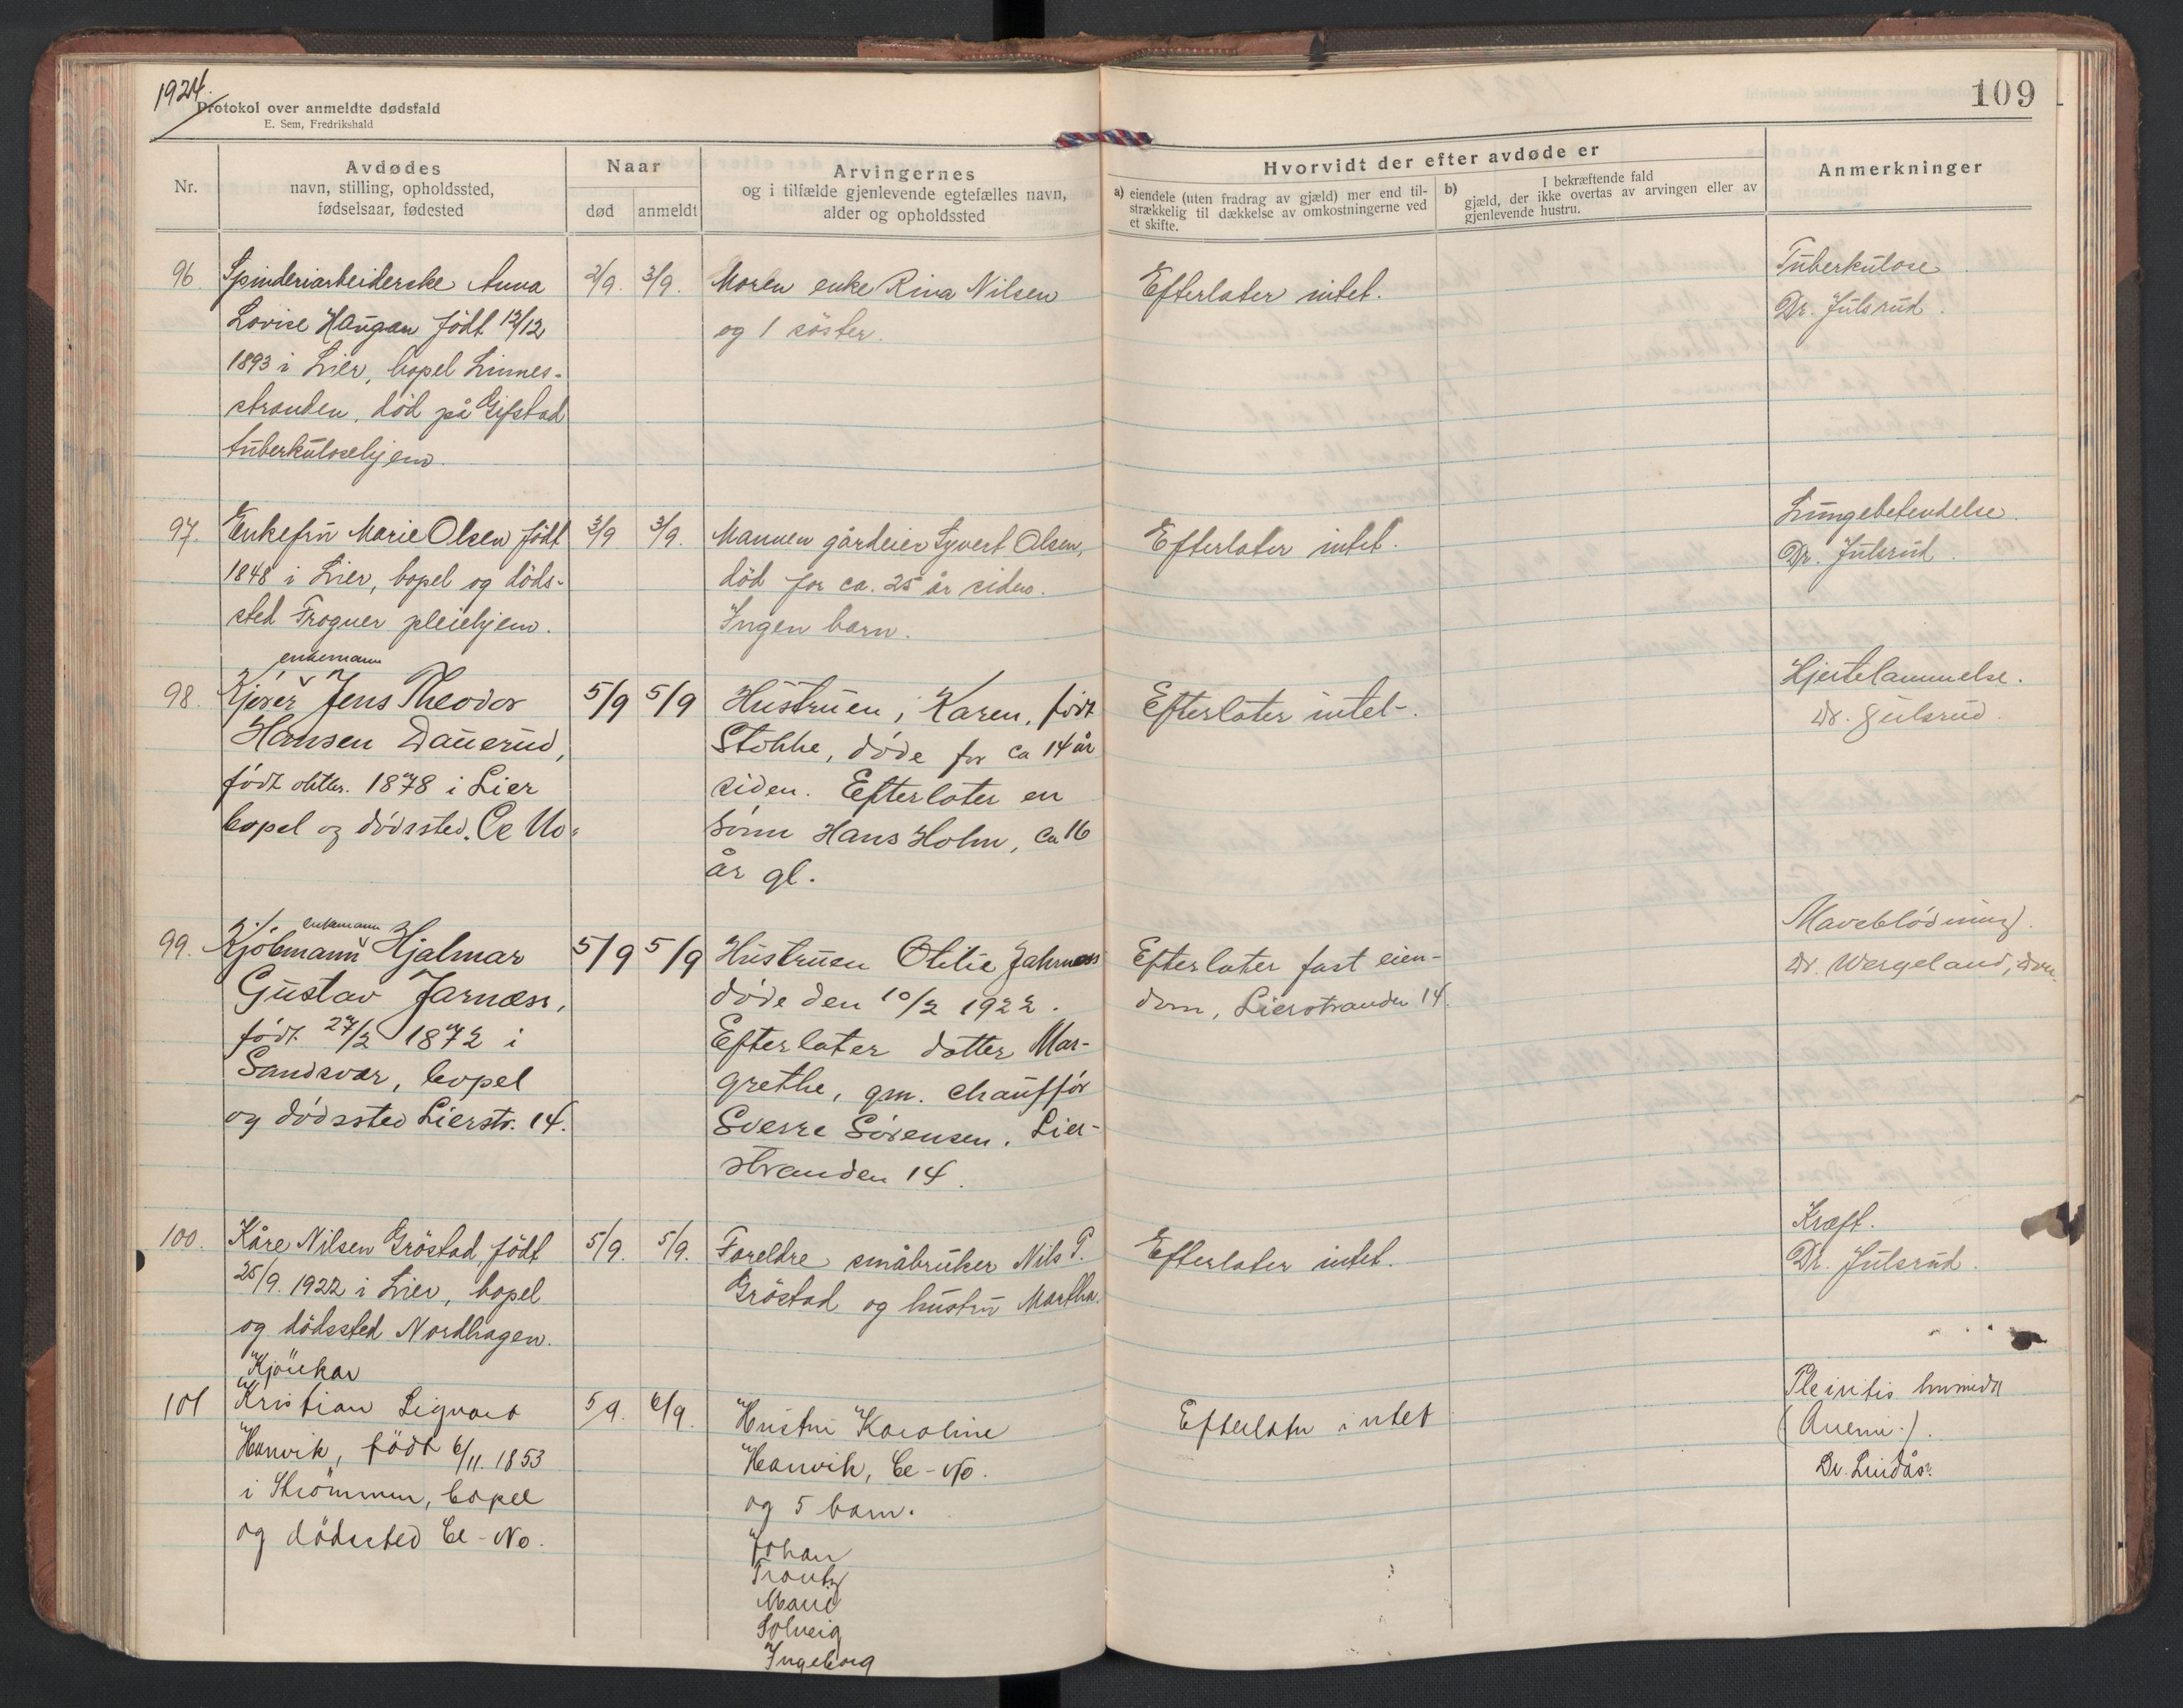 1924.
Protokol over anmeldte dødsfald
E. Sem, Fredrikshald
109
Nr.
Avdødes
navn, stilling, opholdssted,
fødselsaar, fødested
Naar
død
anmeldt
Arvingernes
og i tilfælde gjenlevende egtefælles navn,
alder og opholdssted
Hvorvidt der efter avdøde er
a) eiendele (uten fradrag av gjæld) mer end til-
strækkelig til dækkelse av omkostningerne ved
et skifte.
b) I bekræftende fald
gjæld, der ikke overtas av arvingen eller av
gjenlevende hustru.
Anmerkninger
96. Spinderiarbeiderske Anna
Lovise Haugan født 12/12
1893 i Lier, bopel Linnes-
stranden, död på Gifstad
tuberkulosehjem.
2/9. 3/9.
Moren enke Rina Nilsen
og 1 söster.
Efterlater intet.
Tuberkulose
Dr. Julsrud.
97. Enkefru Marie Olsen født
1848 i Lier, bopel og döds-
sted Frogner pleiehjem.
3/9 3/9.
Mannen gårdeier Syvert Olsen,
död for ca. 25 år siden.
Ingen barn.
Efterlater intet.
Lungebetendelse.
Dr. Julsrud.
enkemann
98. Kjører Jens Theodor
Hansen Dauerud,
født 1878 i Lier
bopel og dödssted. Ce No.
5/9 5/9
Hustruen, Karen, født
Stokke, døde for ca 14 år
siden. Efterlater en
sønn Hans Holm, ca 16
år gl.
Efterlater intet.
Hjertelammelse.
Dr. Julsrud.
enkemann
99. Kjöbmann Hjalmar
Gustav Jarnæss,
født 27/2 1872 i
Sandsvær, bopel
og dödssted Lierstr. 14.
5/9 5/9
Hustruen Otilie Jahrness
døde den 10/2 1922.
Efterlater datter Mar-
grethe, gm. chaufför
Sverre Sörensen. Lier-
stranden 14.
Efterlater fast eien-
dom, Lierstranden 14.
Maveblödning.
Dr. Wergeland, Dr.men
100. Kåre Nilsen Gröstad, födt
25/9. 1922 i Lier, bopel
og dödssted Nordhagen.
5/9. 5/9.
Foreldre småbruker Nils P.
Gröstad og hustru Martha.
Efterlater intet.
Kræft.
Dr. Julsrud.
101 Kristian Sigvart
Hanvik, född 6/11. 1853
i Strömmen, bopel
og dödssted Ce-No.
5/9. 6/9.
Hustru Karoline
Hanvik, Ce-No.
og 5 barn.
Johan
Marie
Solveig
Ingeborg
Efterlater intet
(Anemi.).
Dr. Lindås.